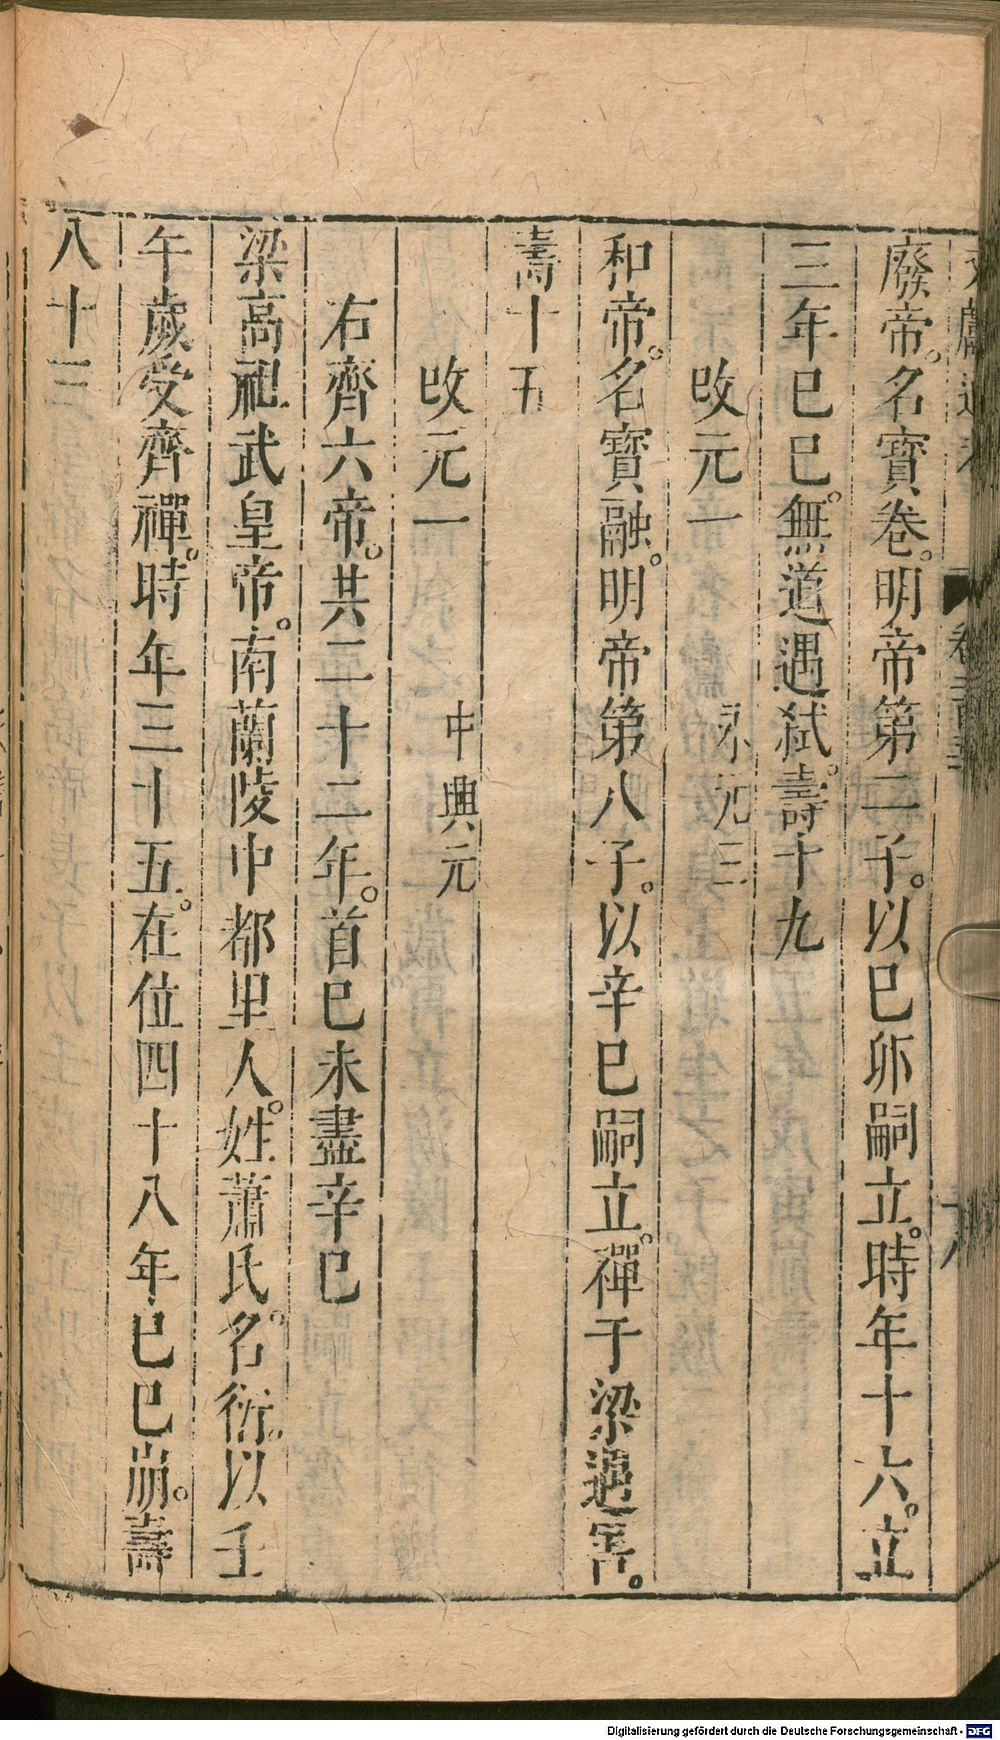 廢帝。名寳卷。明帝第二子。以巳卯嗣立。時年十六。立
三年巳巳。無道遇弑。壽十九
改元一 永元三
和帝。名寳融。明帝第八子。以辛巳嗣立。禪于梁遇害。
壽十五
改元一 中興元
右齊六帝。共二十二年。首巳未盡辛巳
梁高祖武皇帝。南蘭陵中都里人。姓蕭氏。名衍。以壬
午歲受齊禪。時年三十五。在位四十八年巳巳崩。壽
八十三
Digitalisierung gefördert durch die Deutsche Forschungsgemeinschaft - DFG